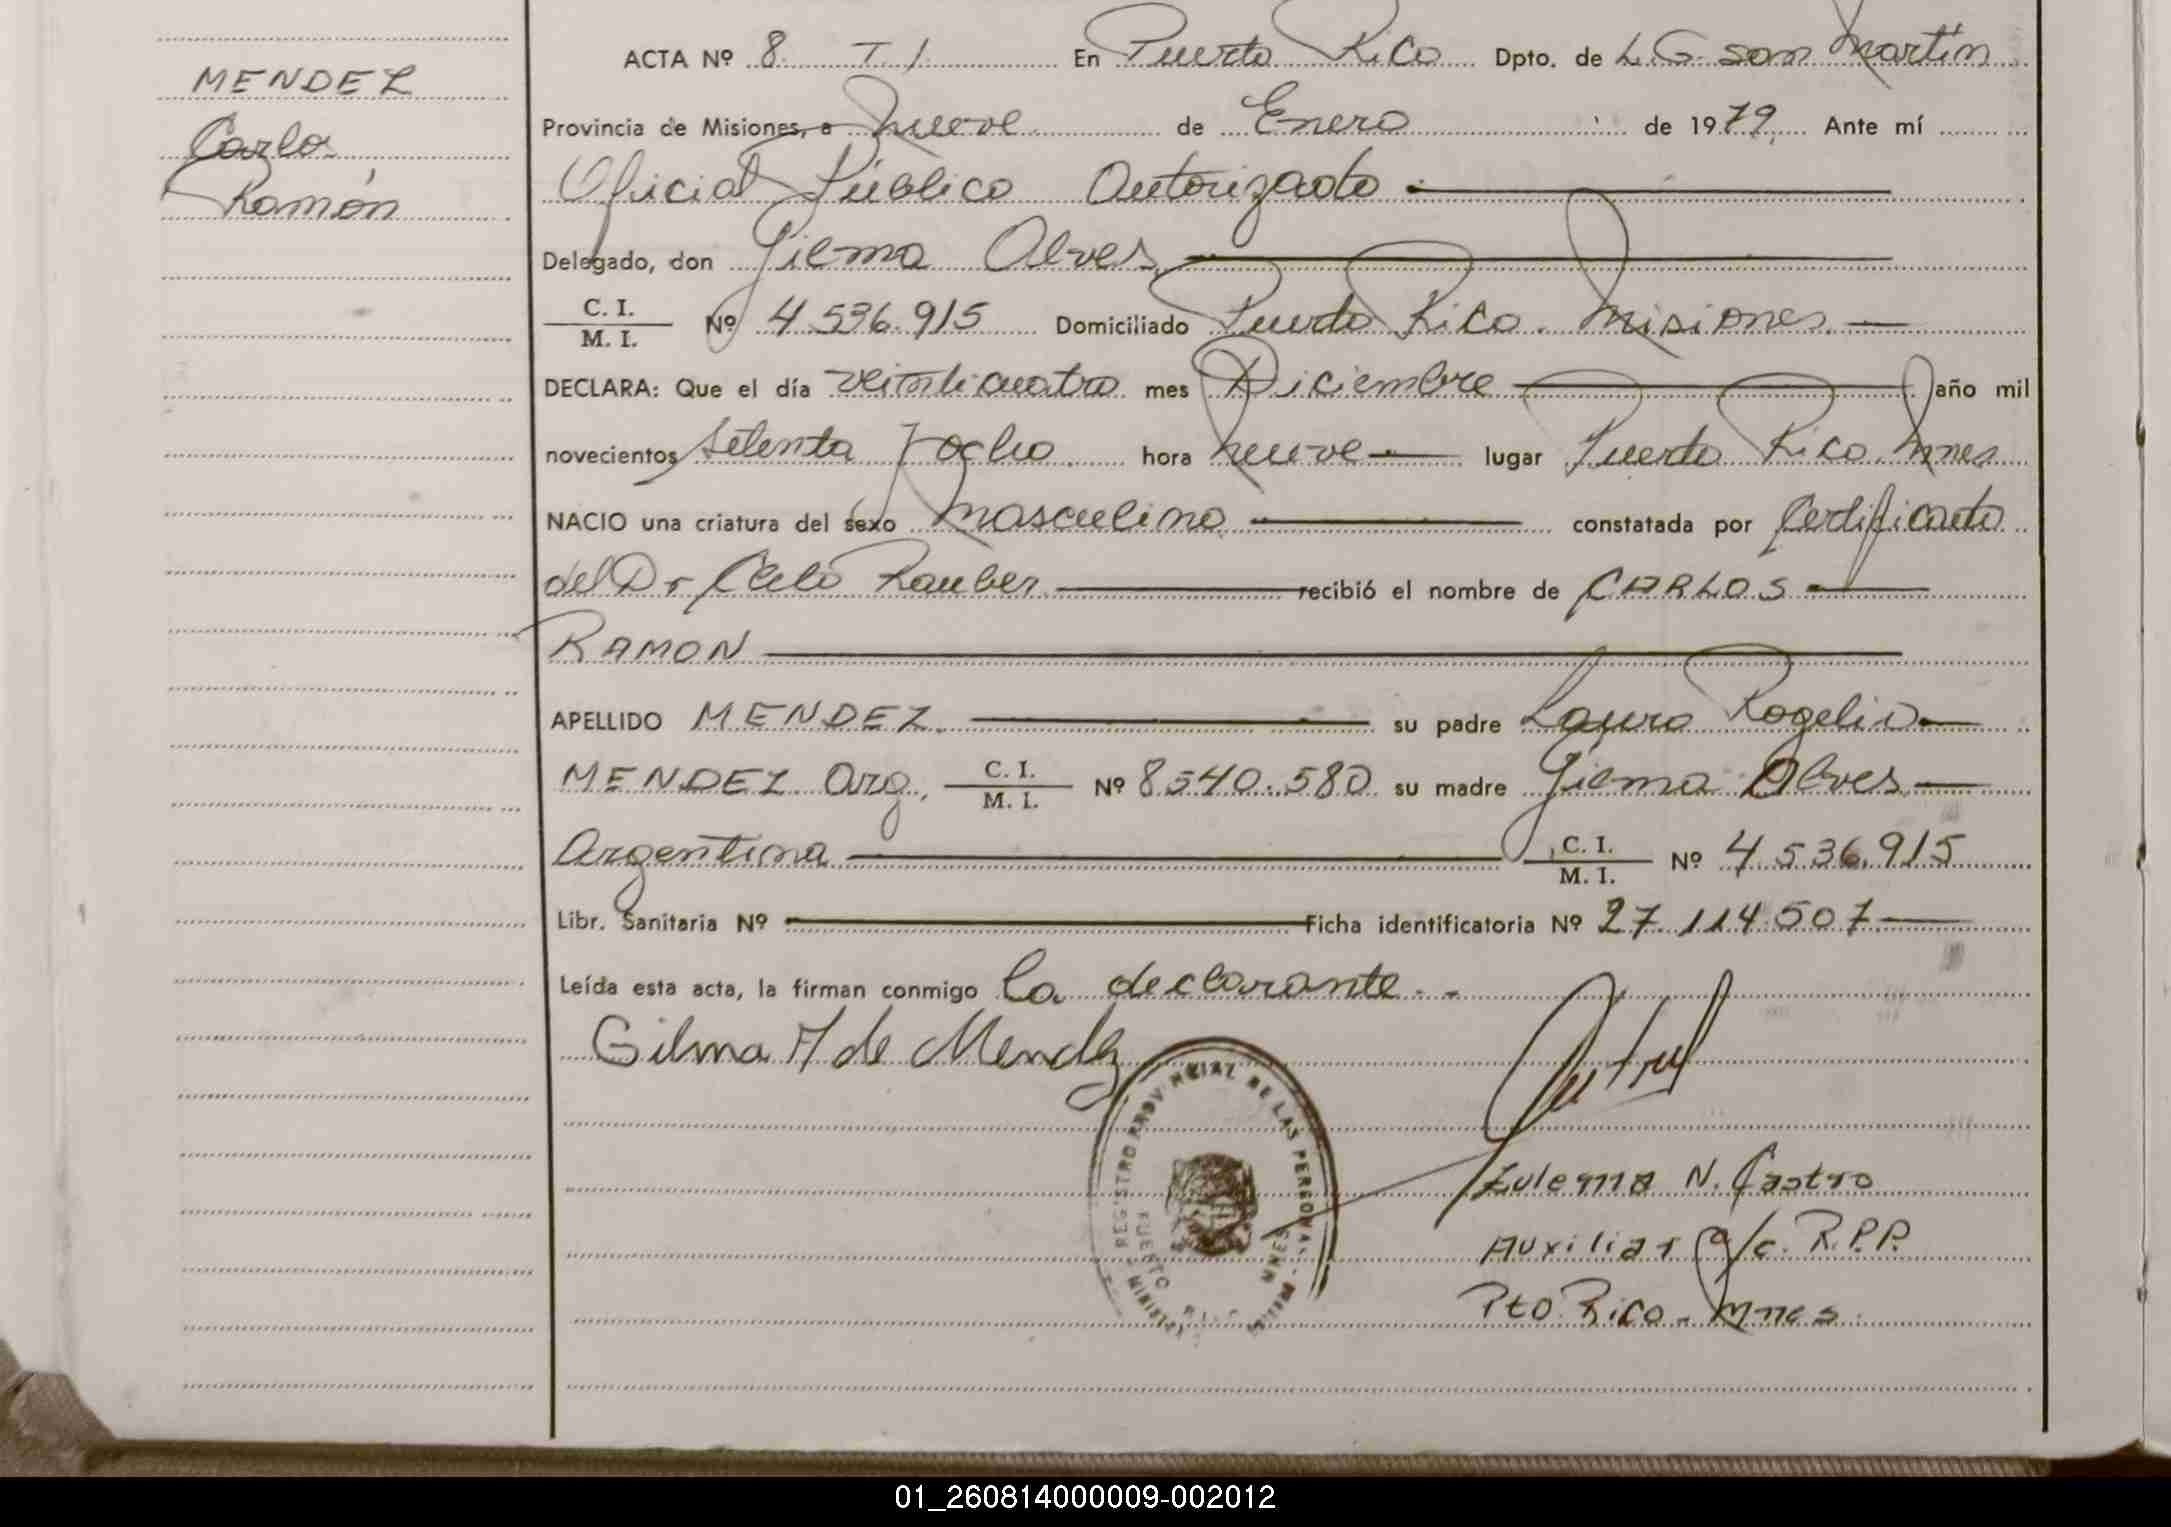 MENDEZ
Carlos
Ramón
ACTA Nº 8. T. 1. En Puerto Rico Dpto. de L. G. San Martín
Provincia de Misiones, a nueve de Enero de 1979. Ante mí
Oficial Público Autorizado
Delegado, don Gilma Alves
C. I.
M. I. Nº 4.536.915 Domiciliado Puerto Rico. Misiones
DECLARA: Que el día veinticuatro mes Diciembre año mil
novecientos setenta y ocho hora nueve lugar Puerto Rico. Mnes
NACIO una criatura del sexo masculino constatada por Certificado
del Dr Celo Rauber recibió el nombre de CARLOS
RAMON
APELLIDO MENDEZ su padre Lauro Rogelio
MENDEZ Arg. C. I.
M. I. Nº 8540.580 su madre Gilma Alves
Argentina C. I.
M. I. Nº 4.536.915
Libr. Sanitaria Nº Ficha identificatoria Nº 27.114.507
Leída esta acta, la firman conmigo la declarante. -
Gilma A de Mendez
REGISTRO PROVINCIAL DE LAS PERSONAS
PUERTO RICO MNES
Zulema N. Castro
Auxiliar a/c. R.P.P.
Pto. Rico - Mnes.
01_260814000009-002012